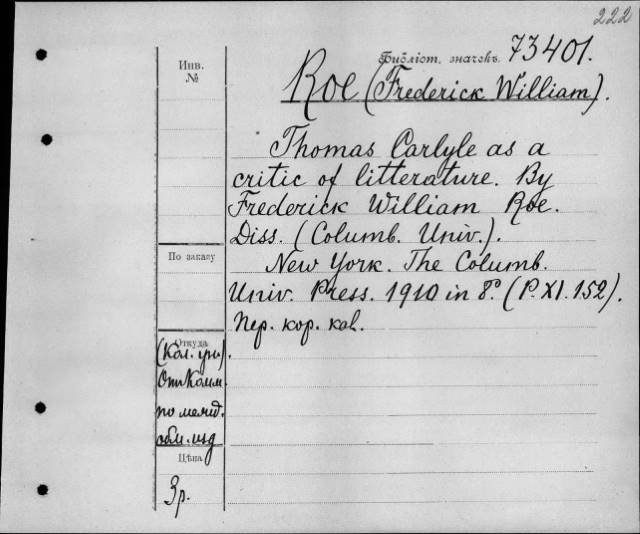 222
Инв. №
Библіот. значекъ 73401.
Roe (Frederick William).
Thomas Carlyle as a
critic of litterature. By
Frederick William Roe.
Diss. (Columb. Univ.).
По заказу
New York. The Columb.
Univ. Press. 1910 in 8º. (P. XI. 152).
Пер. кор. кол.
Откуда
(Кол. ун.)
От Комм.
по межд.
обм. изд
Цѣна
3р.